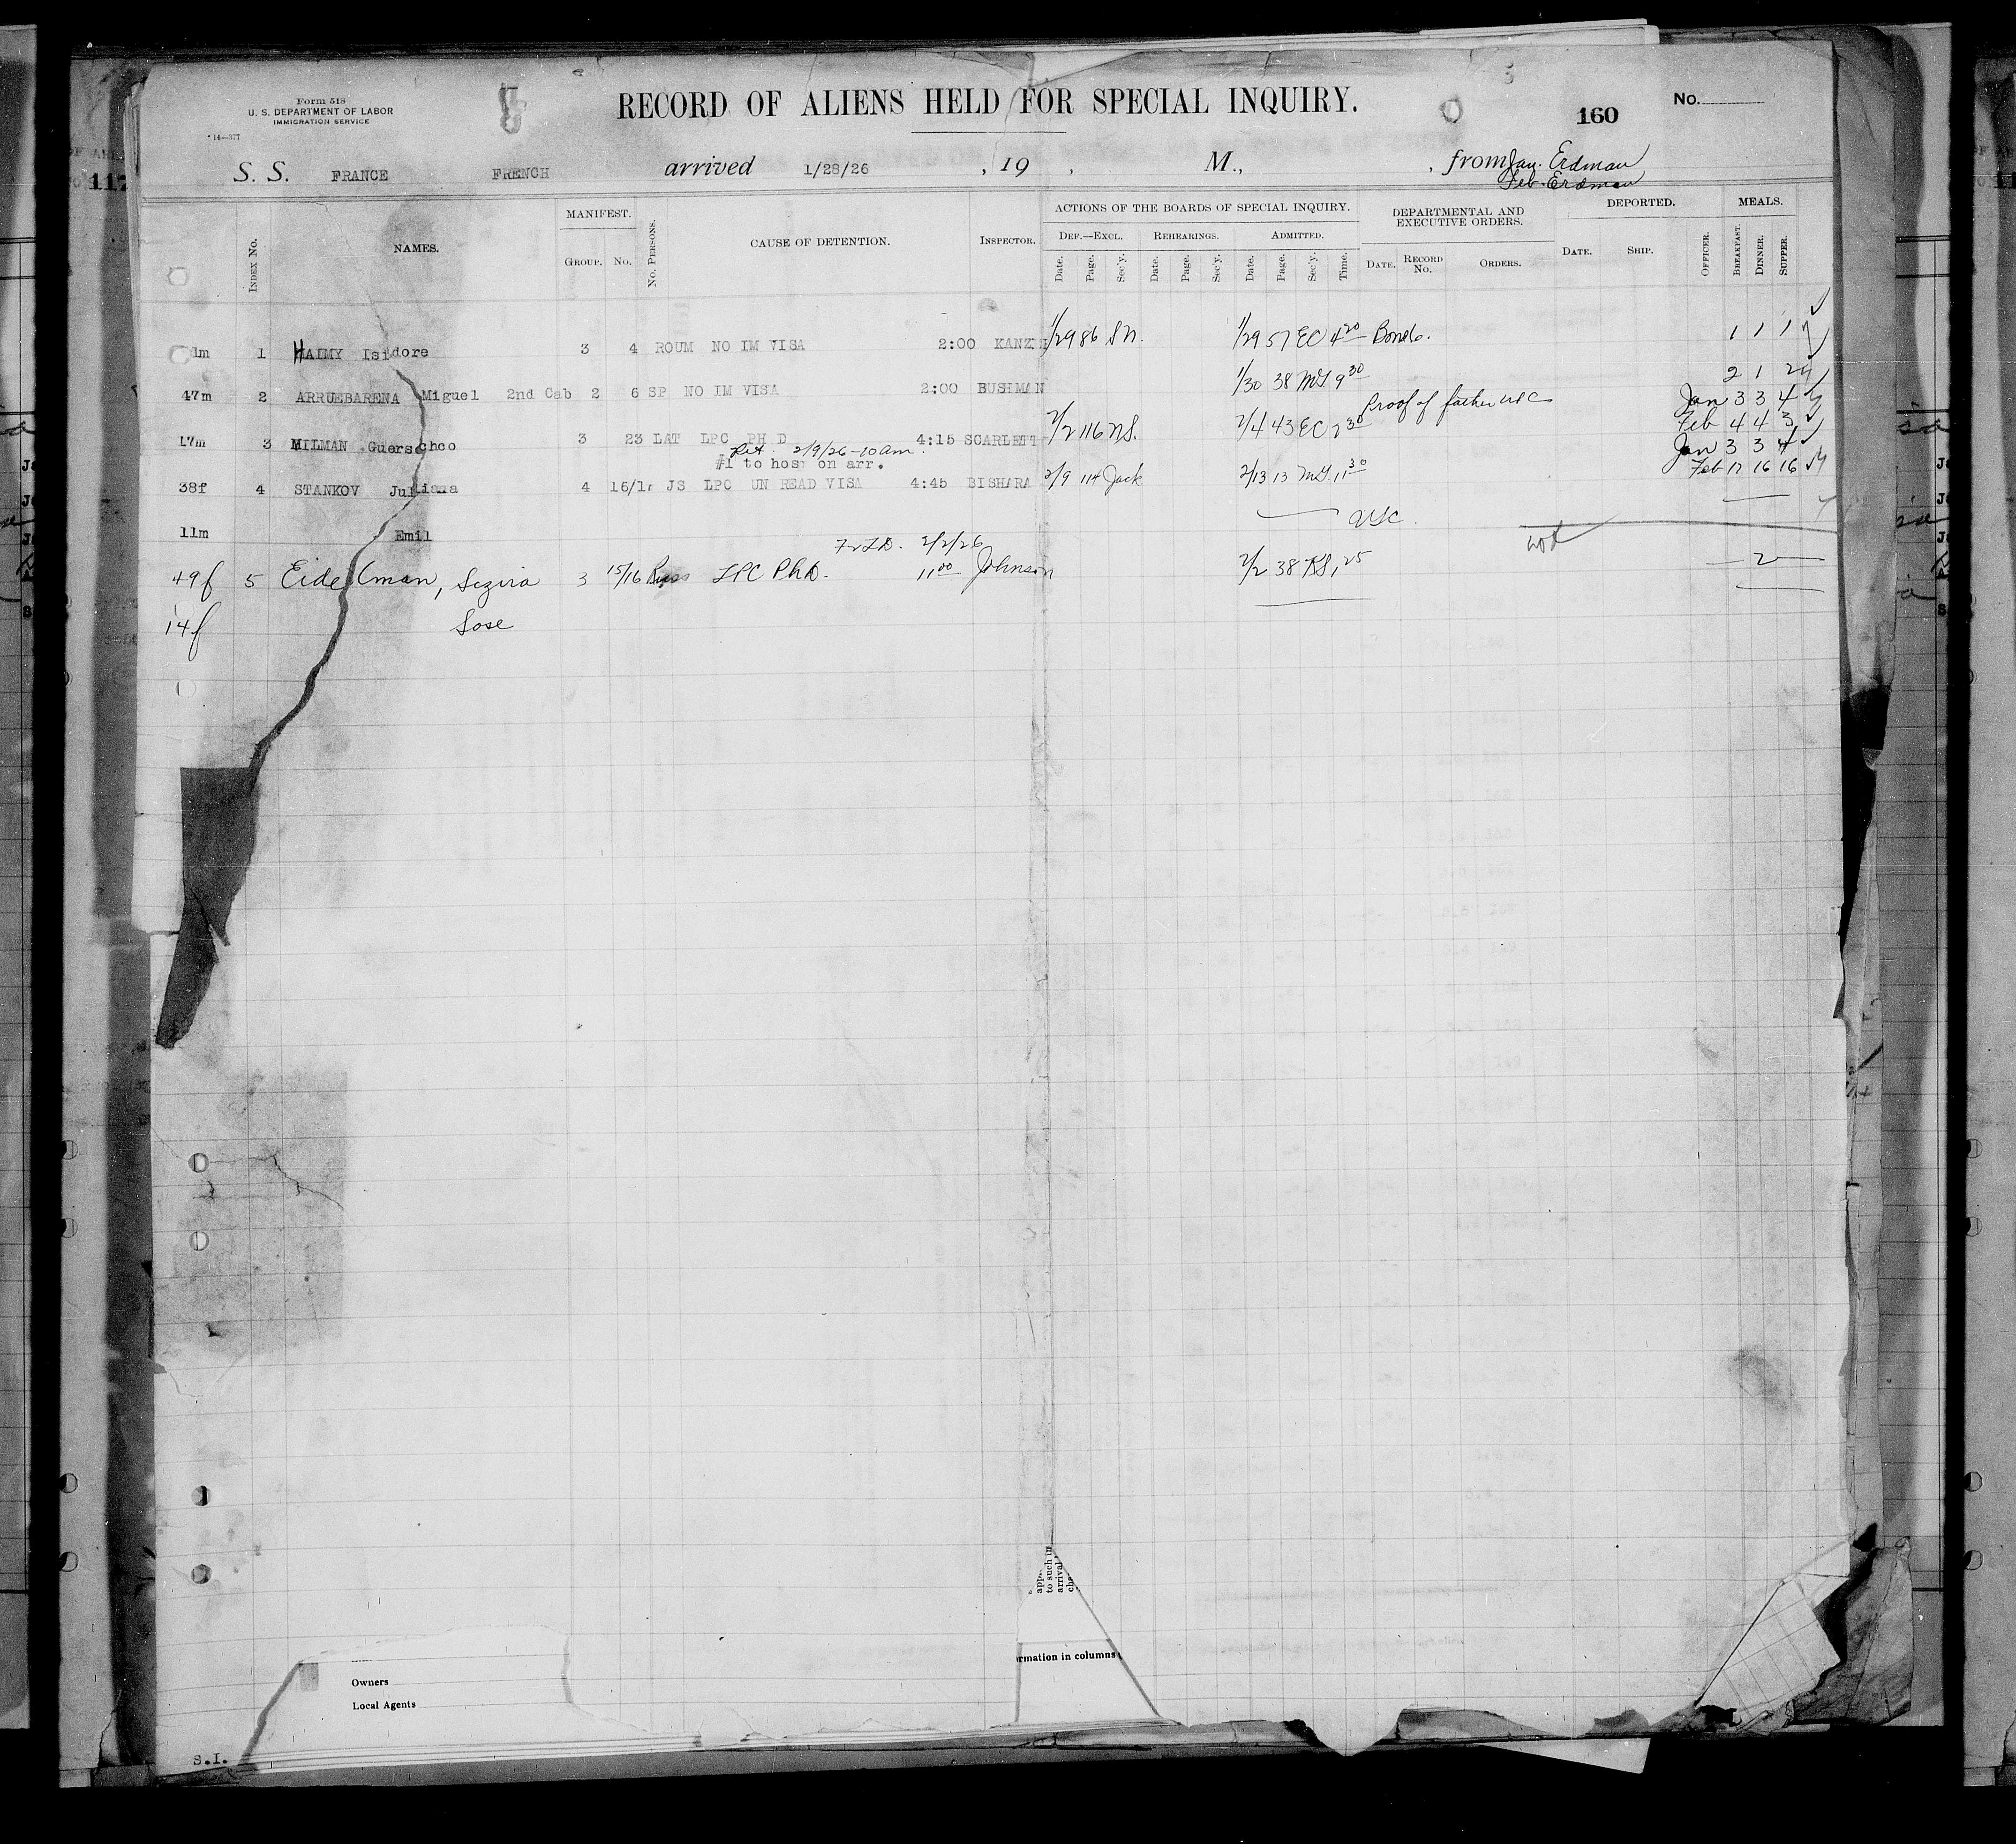 Form 518
U. S. DEPARTMENT OF LABOR
IMMIGRATION SERVICE
14—377
RECORD OF ALIENS HELD FOR SPECIAL INQUIRY.
160
No.
S. S. FRANCE FRENCH arrived 1/28/26 , 19 , M., , from Jan. Erdman
Feb. Erdman
INDEX NO. NAMES. MANIFEST. GROUP. NO. NO. PERSONS. CAUSE OF DETENTION. INSPECTOR. ACTIONS OF THE BOARDS OF SPECIAL INQUIRY. DEPARTMENTAL AND EXECUTIVE ORDERS. DEPORTED. MEALS.
DEF.—EXCL. REHEARINGS. ADMITTED.
Date. Page. Sec'y. Date. Page. Sec'y. Date. Page. Sec'y. Time. DATE. RECORD NO. ORDERS. DATE. SHIP. OFFICER. BREAKFAST. DINNER. SUPPER.
1m 1 HAIMY Isidore 3 4 ROUM NO IM VISA 2:00 1/29 86 SN. 1/29 57 EC 4 20 Bond. 1 1 1
47m 2 ARRUEBARENA Miguel 2nd Cab 2 6 SP NO IM VISA 2:00 BUSHMAN 1/30 38 9 30 2 1 2
Proof of father USC Jan 3 3 4
17m 3 MILMAN Guerschco 3 23 LAT LPC PH D 4:15 SCARLETT 2/2 116 NS. 2/4 43 EC 2 30 Feb 4 4 3
Ret. 2/9/26-10am. Jan 3 3 4
#1 to hosp on arr. Feb 17 16 16
38f 4 STANKOV Juliana 4 16/17 JS LPC UN READ VISA 4:45 BISHARA 2/9 114 Jack 2/13 13 11 30
11m Emil USC.
2/2/26
49f 5 Eidelman, 3 15/16 Russ LPC PhD. 11 00 Johnson 2/2 38 1 25 2
14f Sose
appl
to such in
arrival
cha
ormation in columns
Owners
Local Agents
S.I.
117